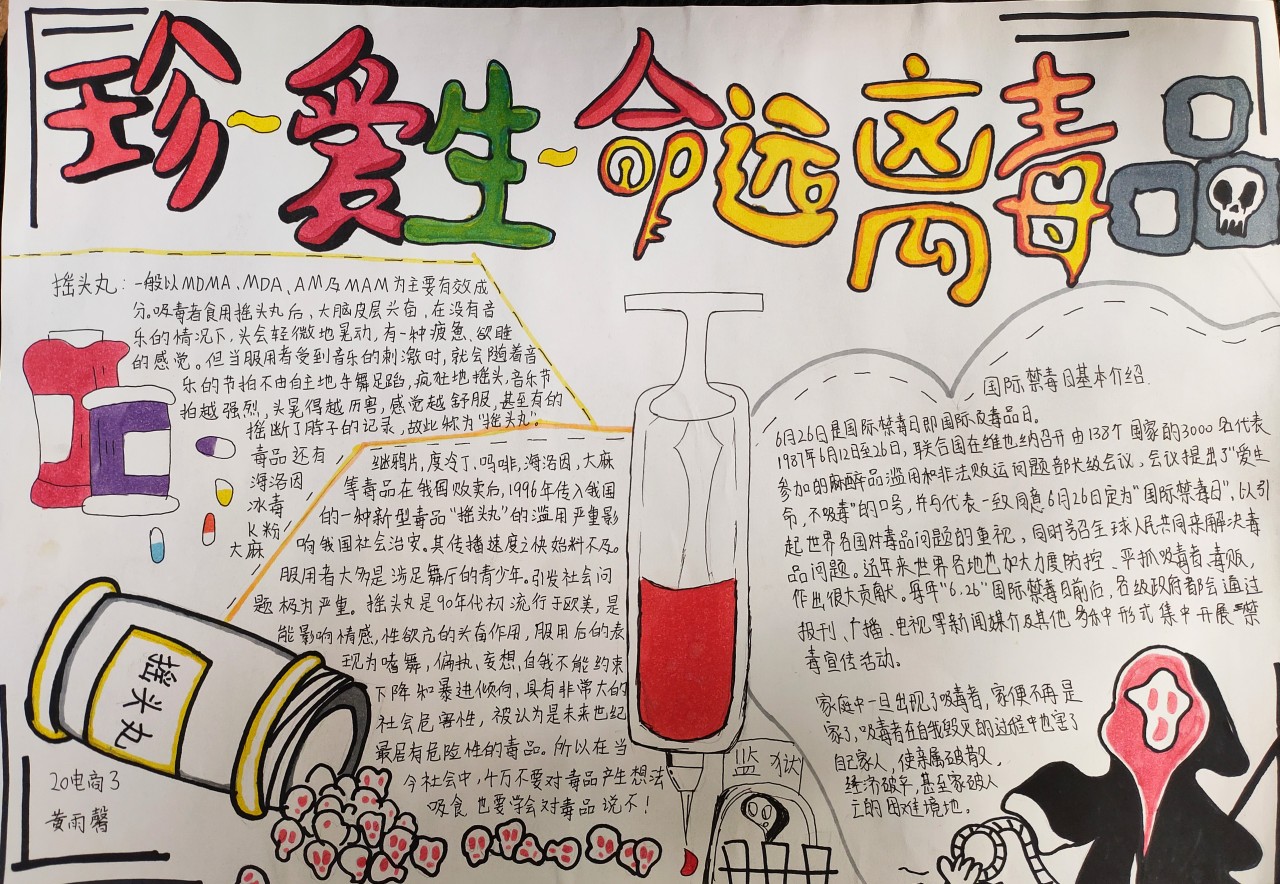 珍爱生命远离毒品
摇头丸：一般以MDMA、MDA、AM及MAM为主要有效成
分。吸毒者食用摇头丸后，大脑皮层兴奋，在没有音
乐的情况下，头会轻微地晃动，有一种疲惫、欲睡
的感觉。但当服用者受到音乐的刺激时，就会随着音
乐的节拍不由自主地手舞足蹈，疯狂地摇头，音乐节
拍越强烈，头晃得越厉害，感觉越舒服，甚至有的
摇断了脖子的记录，故此称为“摇头丸”。
毒品还有
海洛因
冰毒
K粉
大麻
继鸦片，度冷丁、吗啡，海洛因，大麻
等毒品在我国贩卖后，1996年传入我国
的一种新型毒品“摇头丸”的滥用严重影
响我国社会治安。其传播速度之快始料不及。
服用者大多是涉足舞厅的青少年。引发社会问
题极为严重。摇头丸是90年代初流行于欧美，是
能影响情感，性欲亢的头奋作用，服用后的表
现为嗜舞，偏执，妄想，自我不能约束
下降和暴进倾向，具有非常大的
社会危害性，被认为是未来也纪
最居有危险性的毒品。所以在当
今社会中，千万不要对毒品产生想法
吸食也要学会对毒品说不！
摇头丸
20电商3
黄雨馨
监狱
国际禁毒日基本介绍
6月26日是国际禁毒日即国际反毒品日。
1987年6月12日至26日，联合国在维也纳召开由138个国家的3000名代表
参加的麻醉品滥用和非法贩运问题部长级会议，会议提出了“爱生
命，不吸毒”的口号，并与代表一致同意6月26日定为“国际禁毒日”，以引
起世界各国对毒品问题的重视，同时号召全球人民共同来解决毒
品问题。近年来世界各地也加大力度防控、严抓吸毒者，毒贩，
作出很大贡献。每年“6.26”国际禁毒日前后，各级政府都会通过
报刊、广播、电视等新闻媒介及其他多种形式集中开展禁
毒宣传活动。
家庭中一旦出现了吸毒者，家便不再是
家了，吸毒者在自我毁灭的过程中也害了
自己家人，使亲属破散，
经济破产，甚至家破人
亡的困难境地。